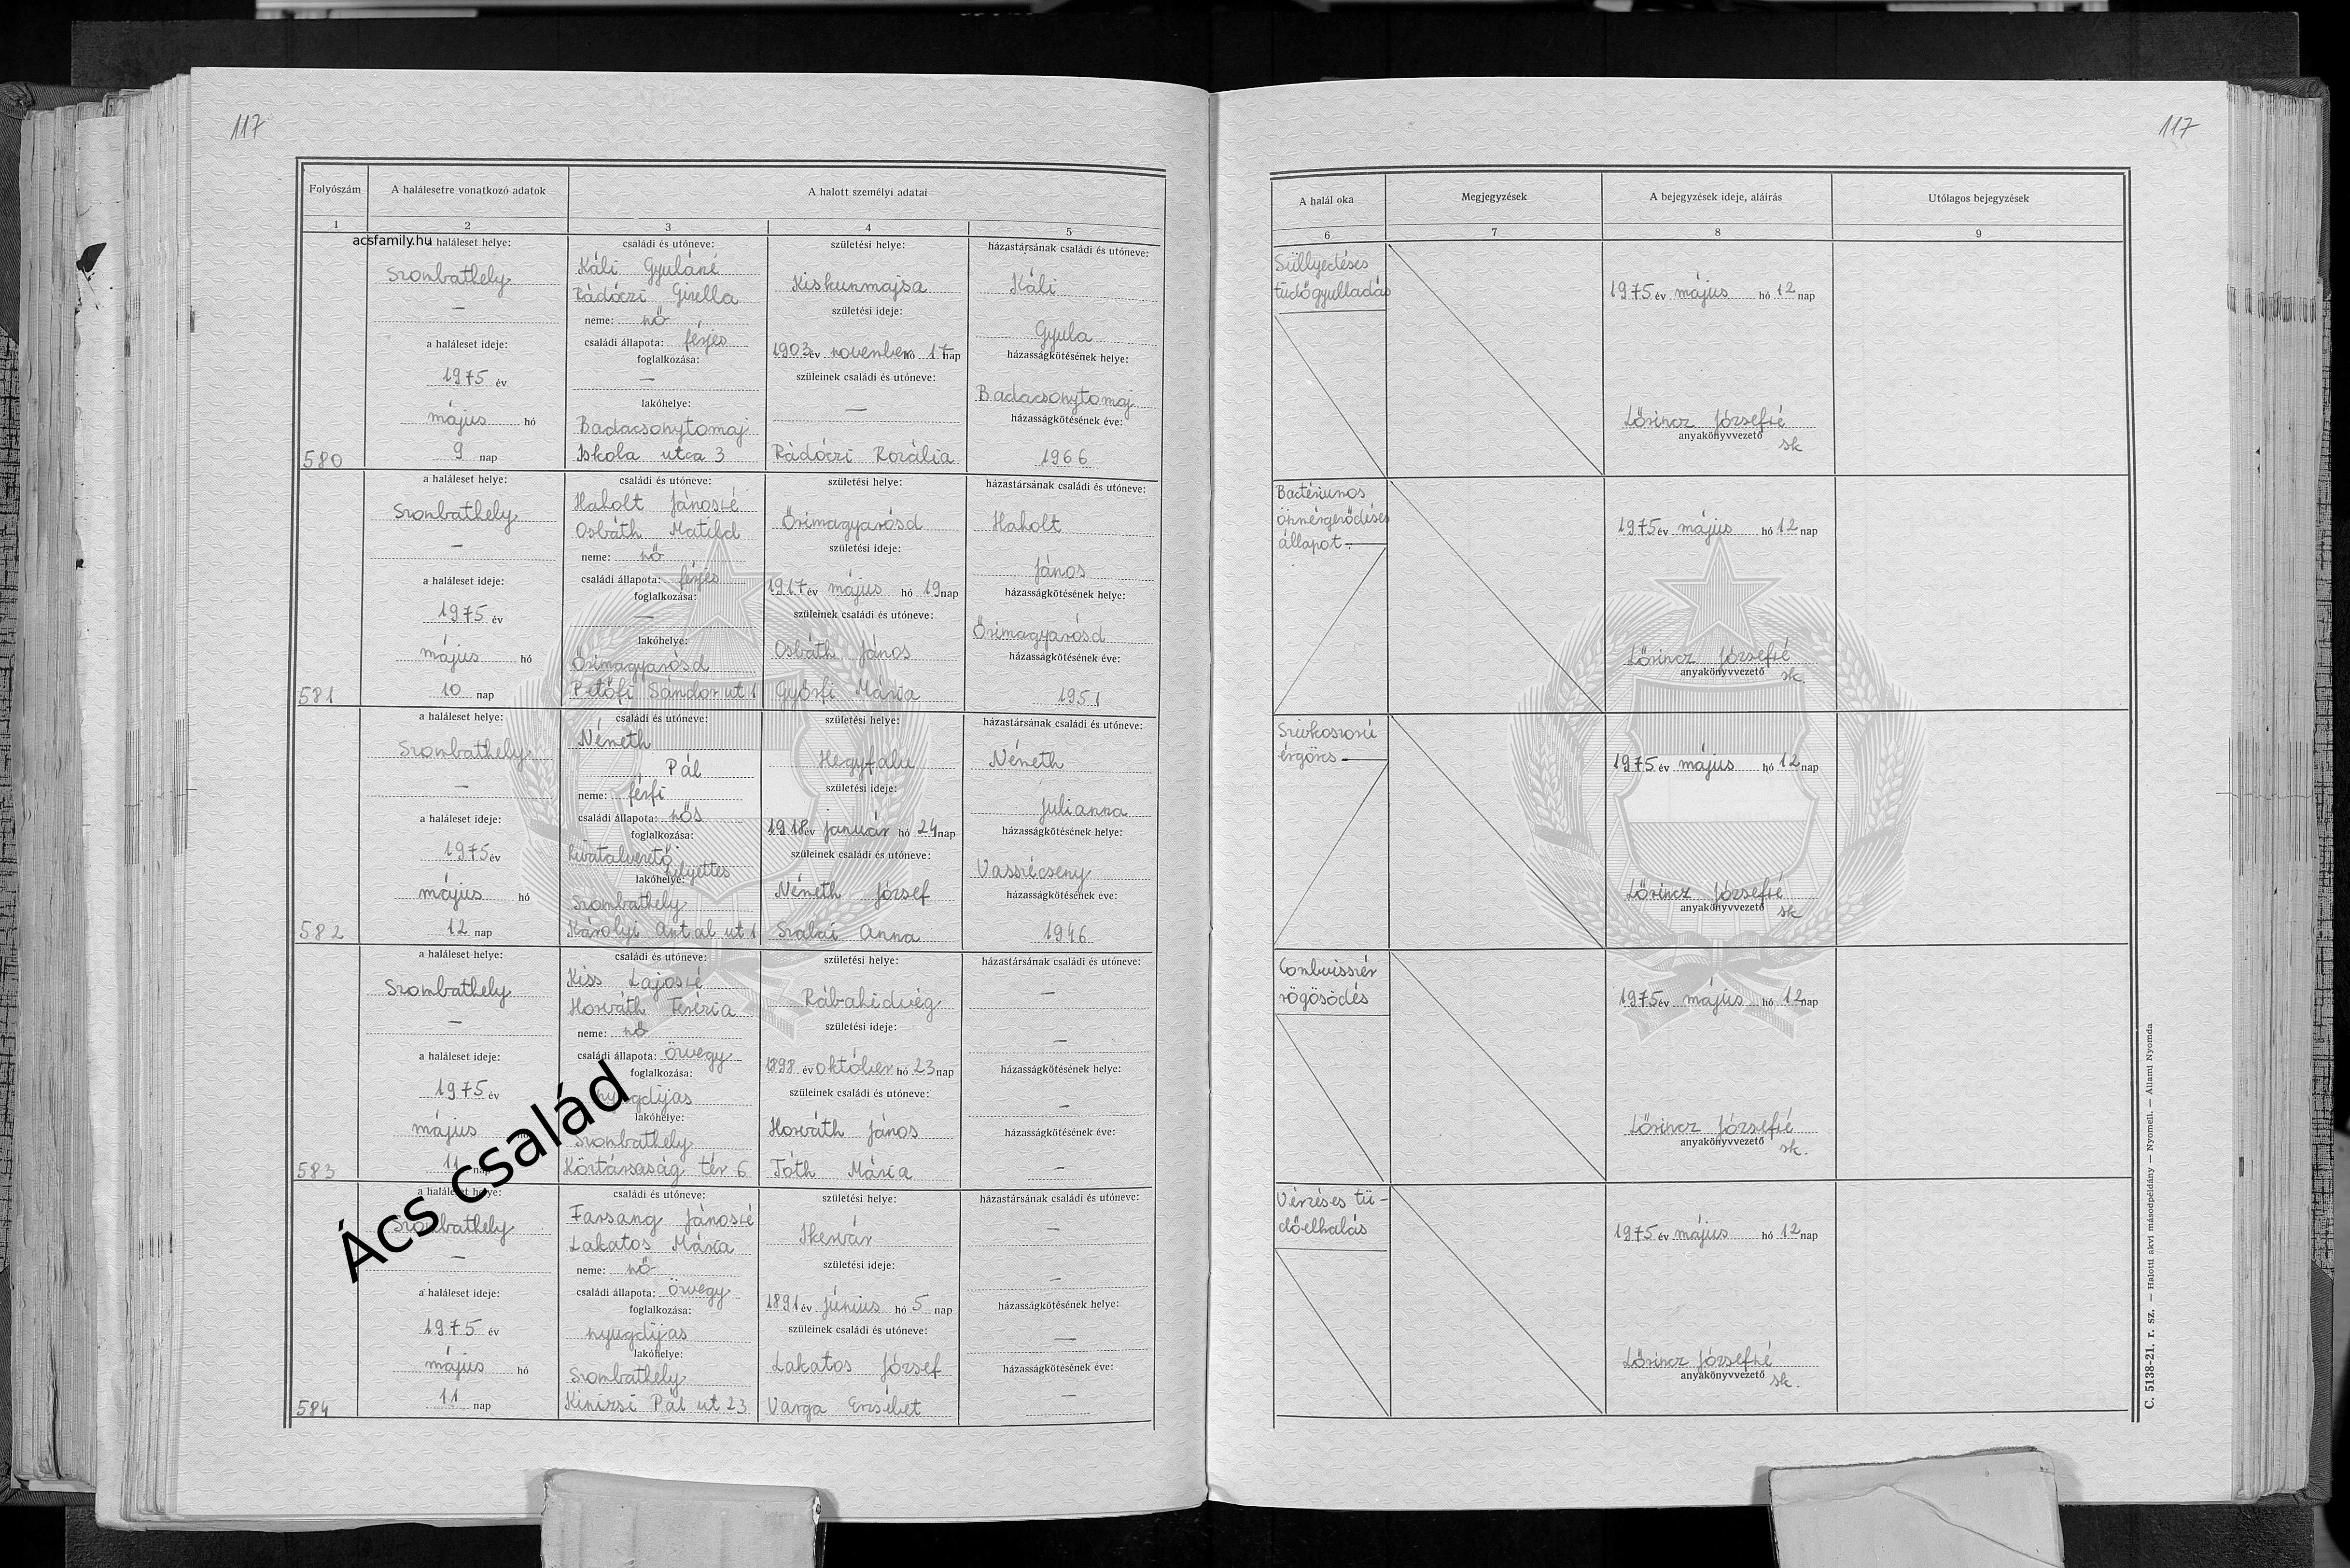 117
117
Folyószám
A halálesetre vonatkozó adatok
A halott személyi adatai
1
2
3
4
5
acsfamily.hu
a haláleset helye:
Szombathely
—
a haláleset ideje:
1975 év
május hó
9 nap
580
családi és utóneve:
Káli Gyuláné
Rádóczi Gizella
neme: nő
családi állapota: férjes
foglalkozása:
—
lakóhelye:
Badacsonytomaj
Iskola utca 3
születési helye:
Kiskunmajsa
születési ideje:
1903 év november hó 17 nap
szüleinek családi és utóneve:
—
Rádóczi Rozália
házastársának családi és utóneve:
Káli
Gyula
házasságkötésének helye:
Badacsonytomaj
házasságkötésének éve:
1966
a haláleset helye:
Szombathely
—
a haláleset ideje:
1975 év
május hó
10 nap
581
családi és utóneve:
Haholt Jánosné
Osbáth Matild
neme: nő
családi állapota: férjes
foglalkozása:
—
lakóhelye:
Őrimagyarósd
Petőfi Sándor ut 1
születési helye:
Őrimagyarósd
születési ideje:
1917 év május hó 19 nap
szüleinek családi és utóneve:
Osbáth János
Győrfi Mária
házastársának családi és utóneve:
Haholt
János
házasságkötésének helye:
Őrimagyarósd
házasságkötésének éve:
1951
a haláleset helye:
Szombathely
—
a haláleset ideje:
1975 év
május hó
12 nap
582
családi és utóneve:
Németh
Pál
neme: férfi
családi állapota: nős
foglalkozása:
hivatalvezető
helyettes
lakóhelye:
Szombathely
Károlyi Antal ut 1
születési helye:
Hegyfalu
születési ideje:
1918 év január hó 24 nap
szüleinek családi és utóneve:
Németh József
Szalai Anna
házastársának családi és utóneve:
Németh
Julianna
házasságkötésének helye:
Vasszécseny
házasságkötésének éve:
1946
a haláleset helye:
Szombathely
—
a haláleset ideje:
1975 év
május hó
11 nap
583
családi és utóneve:
Kiss Lajosné
Horváth Terézia
neme: nő
családi állapota: özvegy
foglalkozása:
nyugdíjas
lakóhelye:
Szombathely
Köztársaság tér 6
születési helye:
Rábahidvég
születési ideje:
1898 év október hó 23 nap
szüleinek családi és utóneve:
Horváth János
Tóth Mária
házastársának családi és utóneve:
—
—
házasságkötésének helye:
—
házasságkötésének éve:
—
Ács család
a haláleset helye:
Szombathely
—
a haláleset ideje:
1975 év
május hó
11 nap
584
családi és utóneve:
Farsang Jánosné
Lakatos Mária
neme: nő
családi állapota: özvegy
foglalkozása:
nyugdíjas
lakóhelye:
Szombathely
Kinizsi Pál ut 23
születési helye:
Ikervár
születési ideje:
1891 év június hó 5 nap
szüleinek családi és utóneve:
Lakatos József
Varga Erzsébet
házastársának családi és utóneve:
—
—
házasságkötésének helye:
—
házasságkötésének éve:
—
A halál oka
Megjegyzések
A bejegyzések ideje, aláírás
Utólagos bejegyzések
6
7
8
9
Süllyedéses
tüdőgyulladás
1975 év május hó 12 nap
Lőrincz Józsefné
anyakönyvvezető
sk
Bactériumos
önmérgeződéses
állapot.
1975 év május hó 12 nap
Lőrincz Józsefné
anyakönyvvezető
sk.
Szivkoszorú
érgörcs
1975 év május hó 12 nap
Lőrincz Józsefné
anyakönyvvezető
sk
Combvisszér
rögösödés
1975 év május hó 12 nap
Lőrincz Józsefné
anyakönyvvezető
sk.
Vérzéses tü-
dőelhalás
1975 év május hó 12 nap
Lőrincz Józsefné
anyakönyvvezető
sk.
C. 5138-21. r. sz. — Halotti akvi másodpéldány — Nyomell. — Állami Nyomda